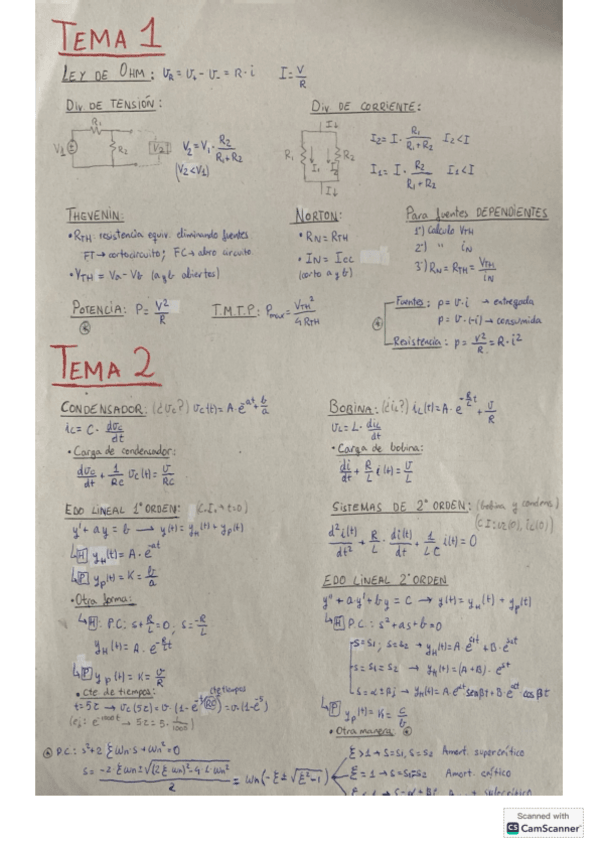 TEMA 1
LEY DE OHM: υR = υ+ - υ- = R·i   I = V/R
DIV DE TENSIÓN:
V1 R1 R2 V2
V2 = V1 · R2/(R1+R2)
(V2<V1)
DIV DE CORRIENTE:
I↓ R1 I1 I2 R2 I↓
I2 = I · R1/(R1+R2)   I2<I
I1 = I · R2/(R1+R2)   I1<I
THEVENIN:
• RTH: resistencia equiv. eliminando fuentes
FT → cortocircuito; FC → abro circuito
• VTH = Va - Vb (a y b abiertos)
NORTON:
• RN = RTH
• IN = ICC
(corto a y b)
Para fuentes DEPENDIENTES
1º) Calculo VTH
2º) " iN
3º) RN = RTH = VTH/iN
POTENCIA: P = V²/R
T.M.T.P: Pmax = VTH²/4RTH
Fuentes: p = υ·i → entregada
p = υ·(-i) → consumida
Resistencia: p = υ²/R = R·i²
TEMA 2
CONDENSADOR: (¿υc?) υc(t) = A·e^-at + b/a
ic = C · dυc/dt
• Carga de condensador:
dυc/dt + 1/RC υc(t) = υ/RC
BOBINA: (¿iL?) iL(t) = A·e^-R/L t + υ/R
υL = L · diL/dt
• Carga de bobina:
di/dt + R/L i(t) = υ/L
EDO LINEAL 1º ORDEN: (C.I. → t=0)
y' + ay = b → y(t) = yH(t) + yP(t)
↳ H yH(t) = A·e^-at
↳ P yP(t) = K = b/a
• Otra forma:
↳ H: P.C: s + R/L = 0, s = -R/L
yH(t) = A·e^-R/L t
↳ P yP(t) = K = υ/R
• Cte de tiempos: cte tiempos
(ej: e^-1000t → 5τ = 5· 1/1000)
SISTEMAS DE 2º ORDEN: (bobina y condens)
(C.I: υc(0), iL(0))
d²i(t)/dt² + R/L · di(t)/dt + 1/LC i(t) = 0
EDO LINEAL 2º ORDEN
y'' + ay' + by = C → y(t) = yH(t) + yP(t)
↳ H P.C: s² + as + b = 0
s = s1; s = s2 → yH(t) = A·e^s1t + B·e^s2t
s = s1 = s2 → yH(t) = (A+B)·e^st
s = α ± βj → yH(t) = A·e^αt sen βt + B·e^αt cos βt
↳ P yP(t) = K = c/b
• Otra manera:
P.C: s² + 2ξωn·s + ωn² = 0
ξ>1 → s=s1, s=s2 Amort. supercrítico
ξ=1 → s=s1=s2 Amort. crítico
Scanned with
CS CamScanner